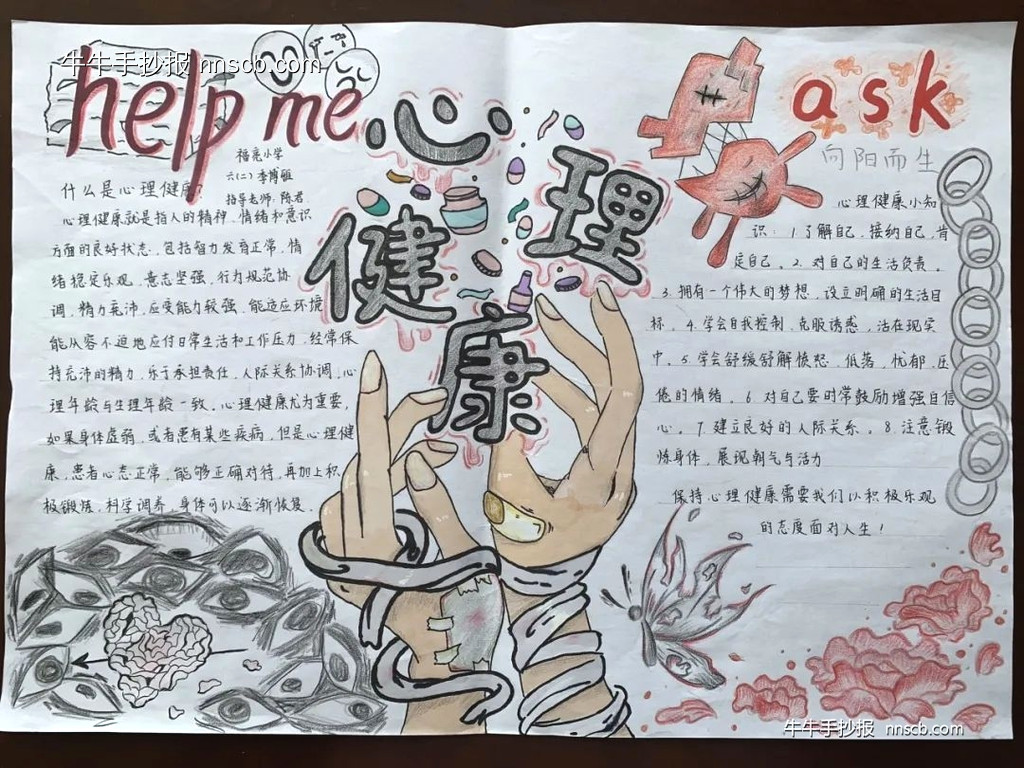 牛牛手抄报 nnscb.com
help me
ask
心理
健
康
福亮小学
六(二) 李博
指导老师：陈君
什么是心理健康？
心理健康就是指人的精神、情绪和意识
方面的良好状态，包括智力发育正常，情
绪稳定乐观，意志坚强，行为规范协
调，精力充沛，应变能力较强，能适应环境，
能从容不迫地应付日常生活和工作压力，经常保
持充沛的精力，乐于承担责任，人际关系协调，心
理年龄与生理年龄一致。心理健康尤为重要，
如果身体虚弱，或者患有某些疾病，但是心理健
康，患者心态正常，能够正确对待，再加上积
极锻炼，科学调养，身体可以逐渐恢复。
向阳而生
心理健康小知
识：1.了解自己，接纳自己，肯
定自己。2.对自己的生活负责。
3.拥有一个伟大的梦想，设立明确的生活目
标。4.学会自我控制，克服诱惑，活在现实
中。5.学会舒缓舒解愤怒，低落，忧郁，压
倦的情绪。6.对自己要时常鼓励增强自信
心。7.建立良好的人际关系。8.注意锻
炼身体，展现朝气与活力
保持心理健康需要我们以积极乐观
的态度面对人生！
牛牛手抄报 nnscb.com